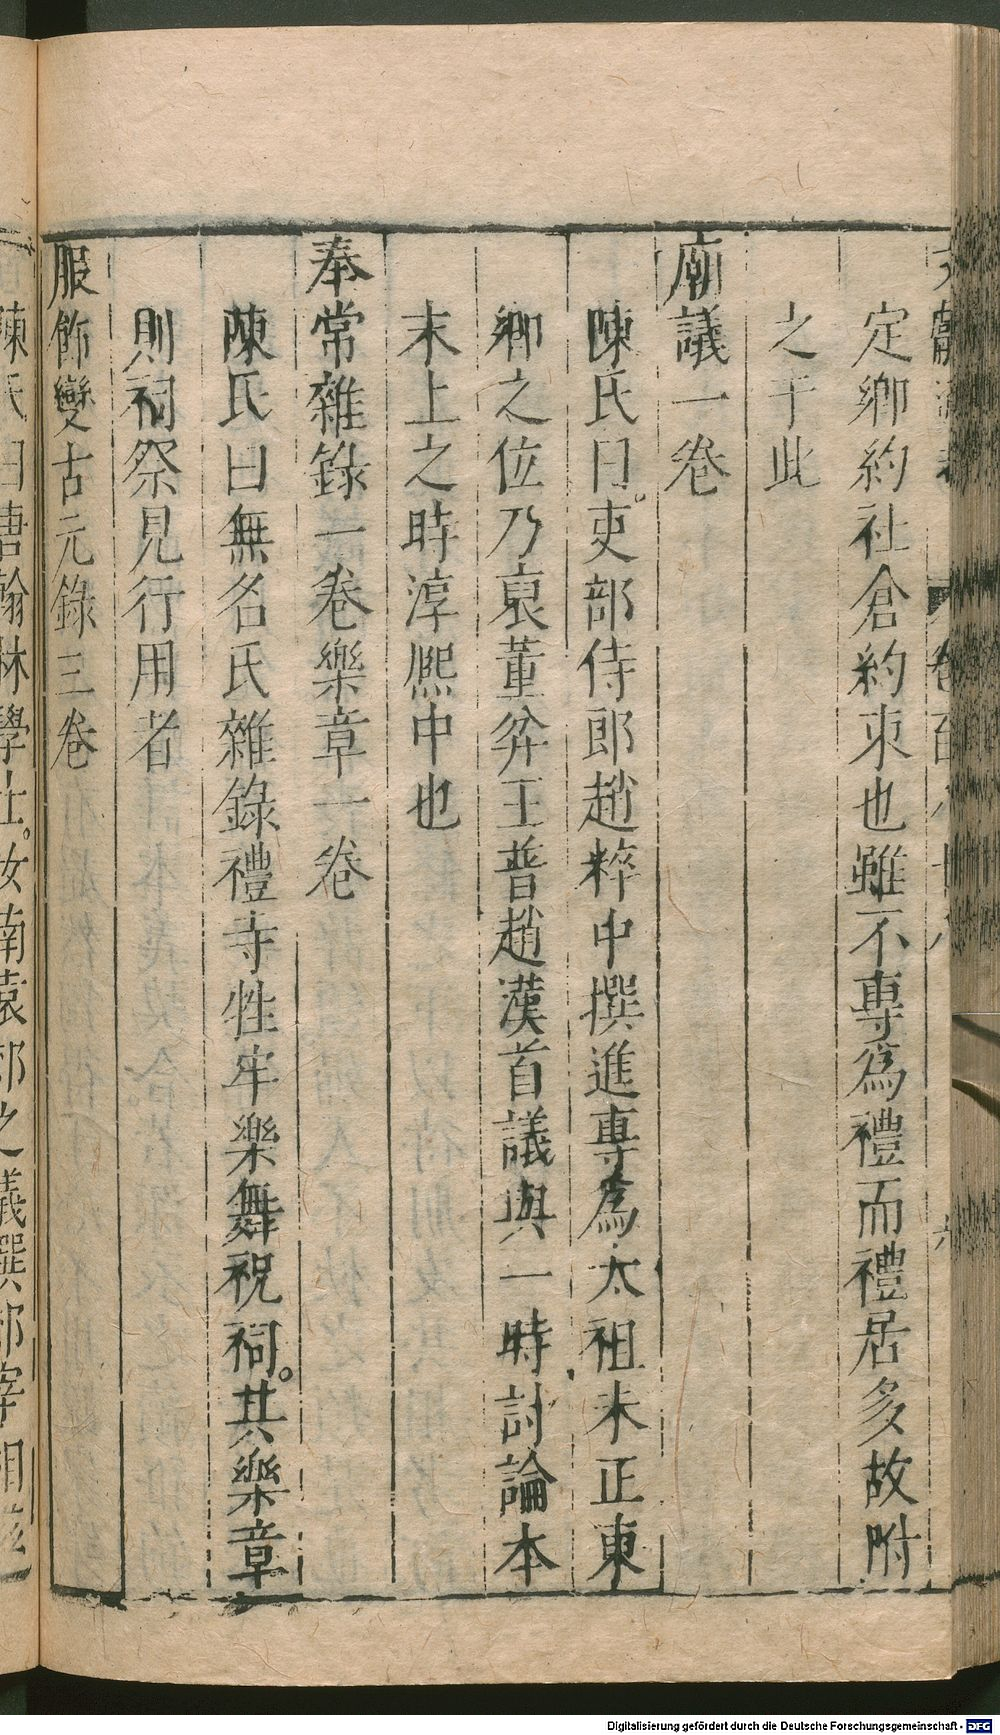 定鄉約社倉約束也雖不專為禮而禮居多故附
之于此
廟議一卷
陳氏曰吏部侍郎趙粹中撰進專為太祖未正東
鄉之位乃裒董弅王普趙漢首議與一時討論本
末上之時淳熙中也
奉常雜錄一卷樂章一卷
陳氏曰無名氏雜錄禮寺牲牢樂舞祝祠。其樂章
則祠祭見行用者
服飾變古元錄三卷
陳氏曰唐翰林學士。汝南袁郊之儀撰郊宰相滋
Digitalisierung gefördert durch die Deutsche Forschungsgemeinschaft - DFG